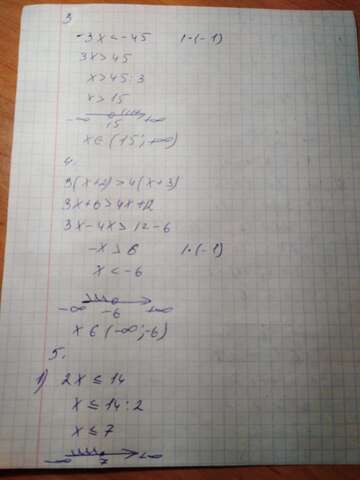 3
-3x < -45 |·(-1)
3x > 45
x > 45 : 3
x > 15
-∞ 15 +∞
x ∈ (15; +∞)
4.
3(x+2) > 4(x+3)
3x+6 > 4x+12
3x-4x > 12-6
-x > 6 |·(-1)
x < -6
-∞ -6 +∞
x ∈ (-∞; -6)
5.
1) 2x ≤ 14
x ≤ 14 : 2
x ≤ 7
-∞ 7 +∞